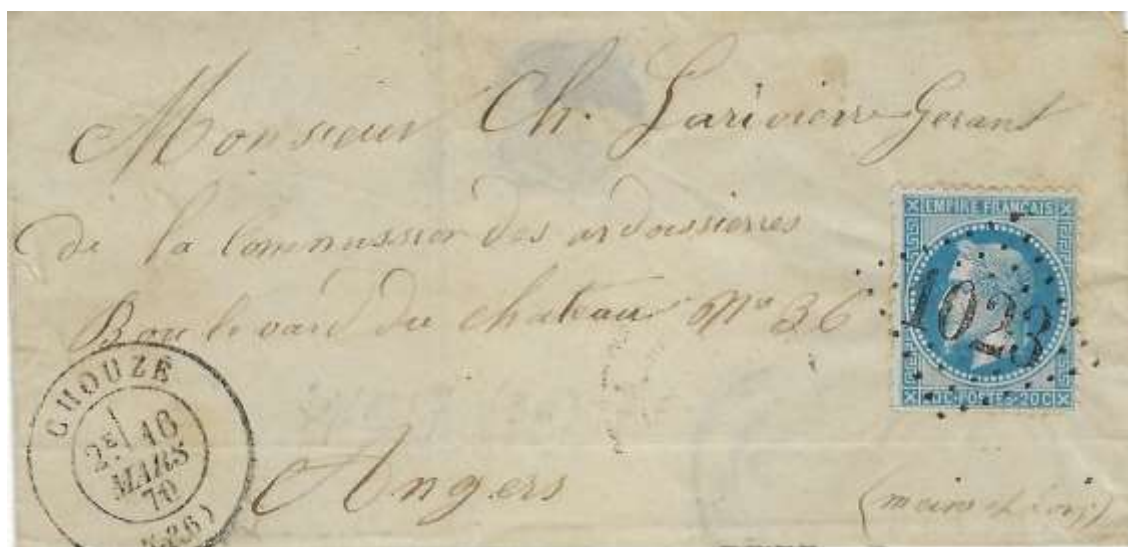 Monsieur Ch. Larivière Gerant
de la Commission des ardoisieres
Boulevard du chateau No 36
Angers
EMPIRE FRANÇAIS
1023
20 C · POSTES · 20 C
CHOUZÉ
2E 16
MARS
70
(36)